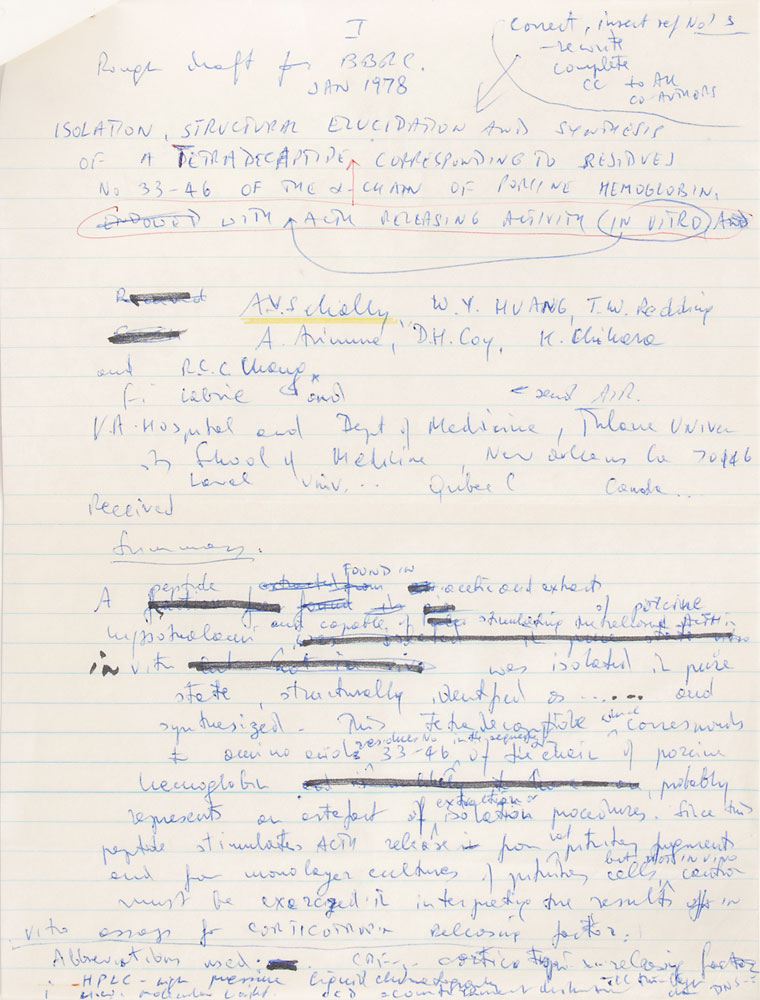 I
correct, insert ref No's
- rewrite
complete
CC to all
co-AUTHORS
Rough draft for BBRC.
JAN 1978
ISOLATION, STRUCTURAL ELUCIDATION AND SYNTHESIS
OF A TETRADECAPTIDE CORRESPONDING TO RESIDUES
No 33-46 OF THE α-CHAIN OF PORCINE HEMOGLOBIN,
ENDOWED WITH ACTH RELEASING ACTIVITY (IN VITRO) AND
A.V. Schally W. Y. HUANG, T.W. Redding
A. Arimura, D.H. Coy, K. Chihara
and R.C.C. Chang
F. Labrie and
← send AIR.
V.A. Hospital and Dept of Medicine, Tulane Univer
ity School of Medicine, New Orleans La 70146
Laval Univ... Quebec Canada...
Received
Summary.
FOUND IN
A peptide extracted from acetic acid extracts
of porcine
hypothalami and capable of stimulating the release ACTH
in vitro was isolated in pure
state, structurally identified as ...... and
synthesized - This tetradecapeptide which corresponds
to amino acids residues No 33-46 in the sequence of the chain of porcine
hemoglobin, probably
represents an artefact of extraction or isolation procedures. Since this
peptide stimulates ACTH release from rat pituitary fragments
and for monolayer cultures of pituitary cells, but not IN VIVO caution
must be exercized in interpreting the results of in
vitro assays for CORTICOTROPIN Releasing factor.
Abbreviations used: CRF - corticotropin-releasing factor
HPLC - high pressure liquid chromatography